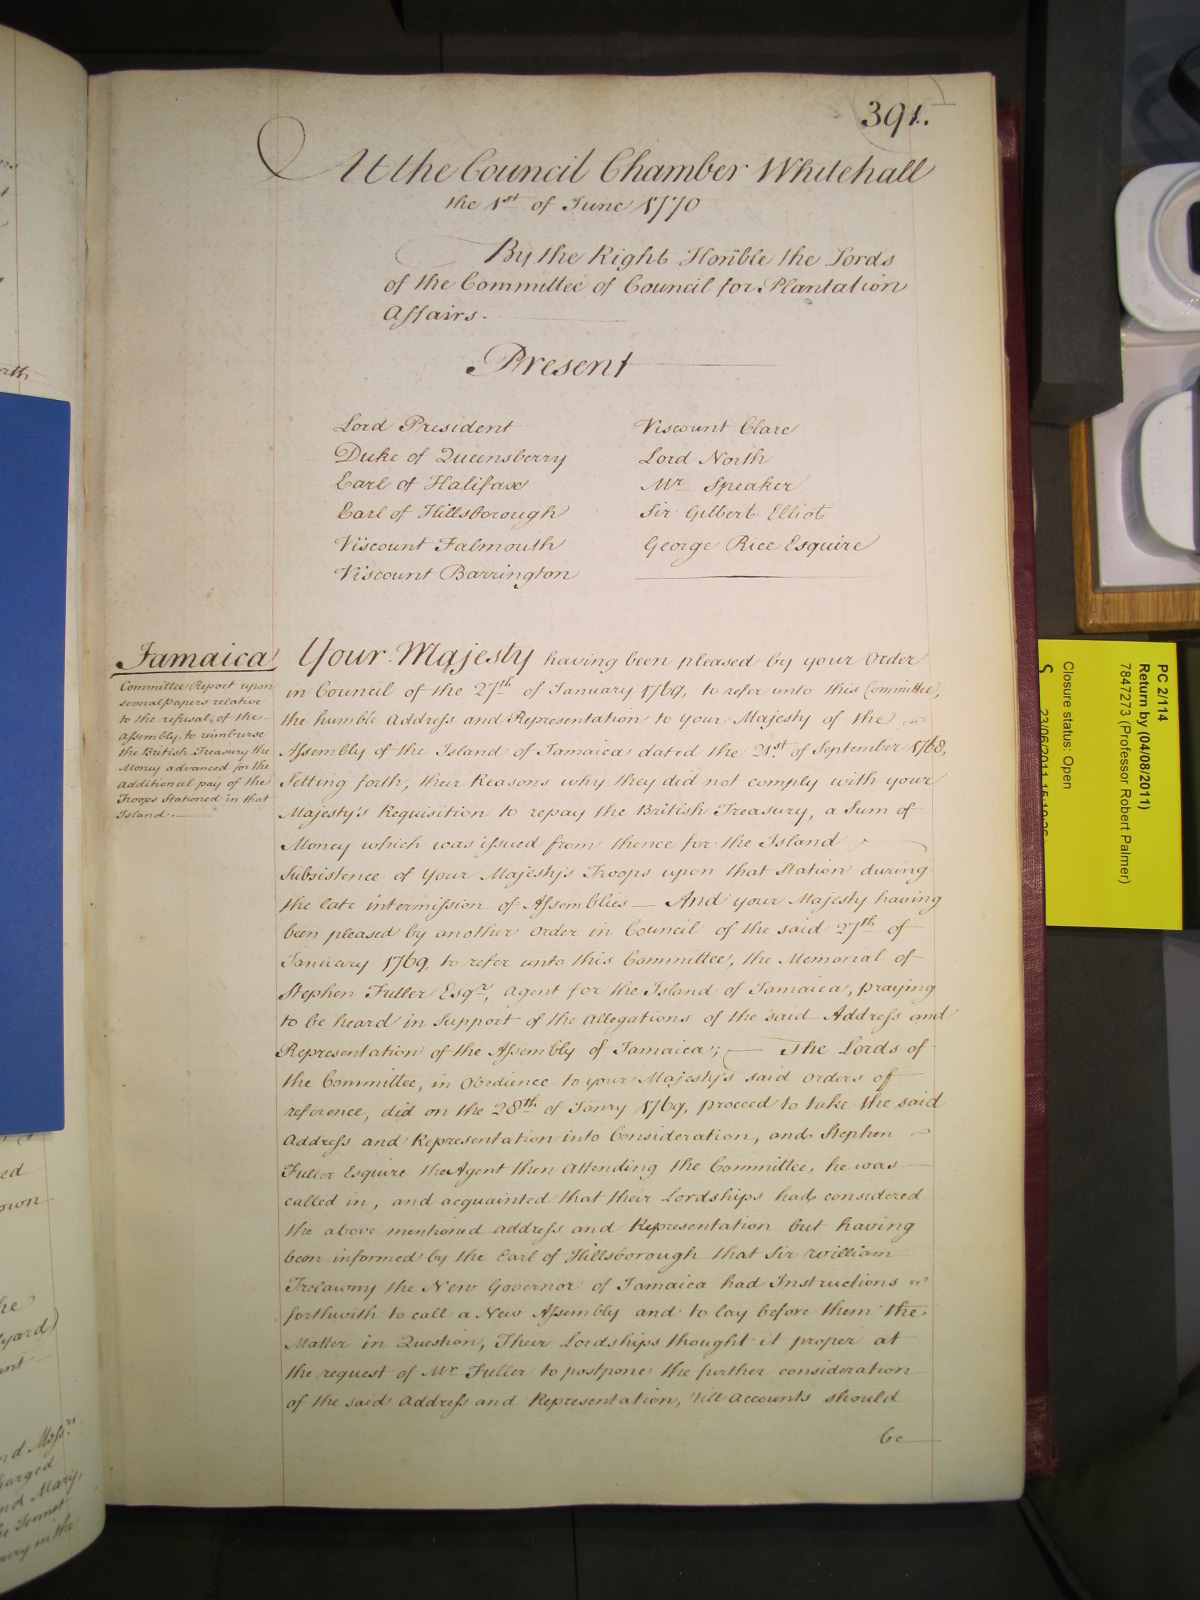 391.
At the Council Chamber Whitehall
the 1st of June 1770
By the Right Honble the Lords
of the Committee of Council for Plantation
Affairs.
Present
Lord President
Duke of Queensberry
Earl of Halifax
Earl of Hillsborough
Viscount Falmouth
Viscount Barrington
Viscount Clare
Lord North
Mr Speaker
Sir Gilbert Elliot
George Rice Esquire
Jamaica
Committee Report upon
several Papers relative
to the refusal of the
Assembly to reimburse
the British Treasury the
Money advanced for the
Additional pay of the
Troops Stationed in that
Island
Your Majesty having been pleased by your Order
in Council of the 27th of January 1769, to refer unto this Committee,
the humble Address and Representation to your Majesty of the
Assembly of the Island of Jamaica dated the 21st of September 1768,
Setting forth, their Reasons why they did not comply with your
Majesty's Requisition to repay the British Treasury, a Sum of
Money which was issued from thence for the Island
Subsistence of Your Majesty's Troops upon that Station during
the late intermission of Assemblies — And your Majesty having
been pleased by another Order in Council of the said 27th of
January 1769, to refer unto this Committee, the Memorial of
Stephen Fuller Esqr, Agent for the Island of Jamaica, praying
to be heard in Support of the Allegations of the said Address and
Representation of the Assembly of Jamaica; — The Lords of
the Committee, in Obedience to your Majesty's said Orders of
reference, did on the 28th of Janry 1769, proceed to take the said
Address and Representation into Consideration, and Stephen
Fuller Esquire the Agent then Attending the Committee, he was
called in, and acquainted that their Lordships had considered
the above mentioned Address and Representation but having
been informed by the Earl of Hillsborough that Sir William
Trelawny the New Governor of Jamaica had Instructions
forthwith to call a New Assembly and to lay before them the
Matter in Question, Their Lordships thought it proper at
the request of Mr Fuller to postpone the further consideration
of the said Address and Representation, 'till Accounts should
be
PC 2/114
Return by (04/08/2011)
7847273 (Professor Robert Palmer)
Closure status: Open
23/06/2011
orth
ed
own
he
yard)
ant
nd Messrs
harged
nd Mary,